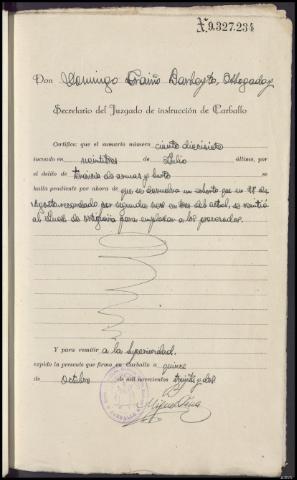 Nº 9.327.234
Don Domingo Abogado,
Secretario del Juzgado de instrucción de Carballo
Certifico: que el sumario número ciento diecisiete
incoado en veintitres de Julio último, por
el delito de tenencia de armas y hurto se
halla pendiente por ahora de que se devuelva un exhorto que en 11 de
Agosto recordado por segunda vez en tres del actual, se remitió
al para emplazar a los procesados.
Y para remitir a la Superioridad,
expido la presente que firmo en Carballo a quince
de Octubre de mil novecientos treinta y dos